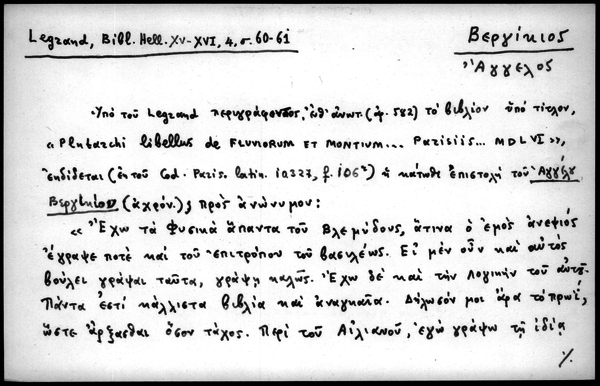 Legrand, Bibl. Hell. XV-XVI, 4, σ. 60-61
Βεργίκιος
Ἄγγελος
Ὑπό τοῦ Legrand περιγράφοντος, ἔνθ' ἀνωτ. (ἀρ. 582) τό βιβλίον ὑπό τίτλον,
« Plutarchi libellus de FLUVIORUM ET MONTIUM... Parisiis... MDLVI »,
ἐκδίδεται (ἐκ τοῦ Cod. Paris. latin. 10327, f. 106ᵛ) ἡ κάτωθι ἐπιστολή τοῦ Ἀγγέλου
Βεργικίου (ἀχρόν.), πρός ἀνώνυμον:
« Ἔχω τά Φυσικά ἅπαντα τοῦ Βλεμύδους, ἅτινα ὁ ἐμός ἀνεψιός
ἔγραψε ποτέ καί τοῦ ἐπιτρόπου τοῦ βασιλέως. Εἰ μέν οὖν καί αὐτός
βούλει γράψαι ταῦτα, γράψῃ καλῶς. Ἔχω δέ καί τήν Λογικήν τοῦ αὐτοῦ.
Πάντα ἐστί κάλλιστα βιβλία καί ἀναγκαῖα. Δήλωσόν μοι ἄρα τό πρωΐ,
ὥστε ἄρξασθαι ὅσον τάχος. Περί τοῦ Αἰλιανοῦ, ἐγώ γράψω τῇ ἰδίᾳ
./.